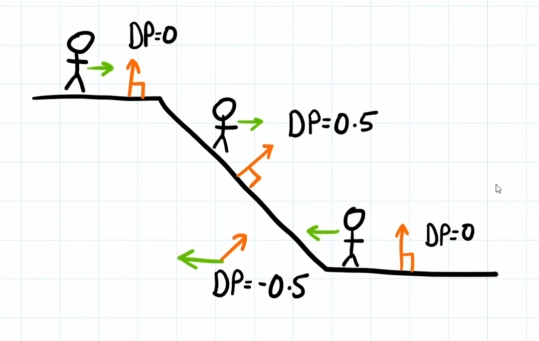 DP=0
DP=0.5
DP=0
DP=-0.5